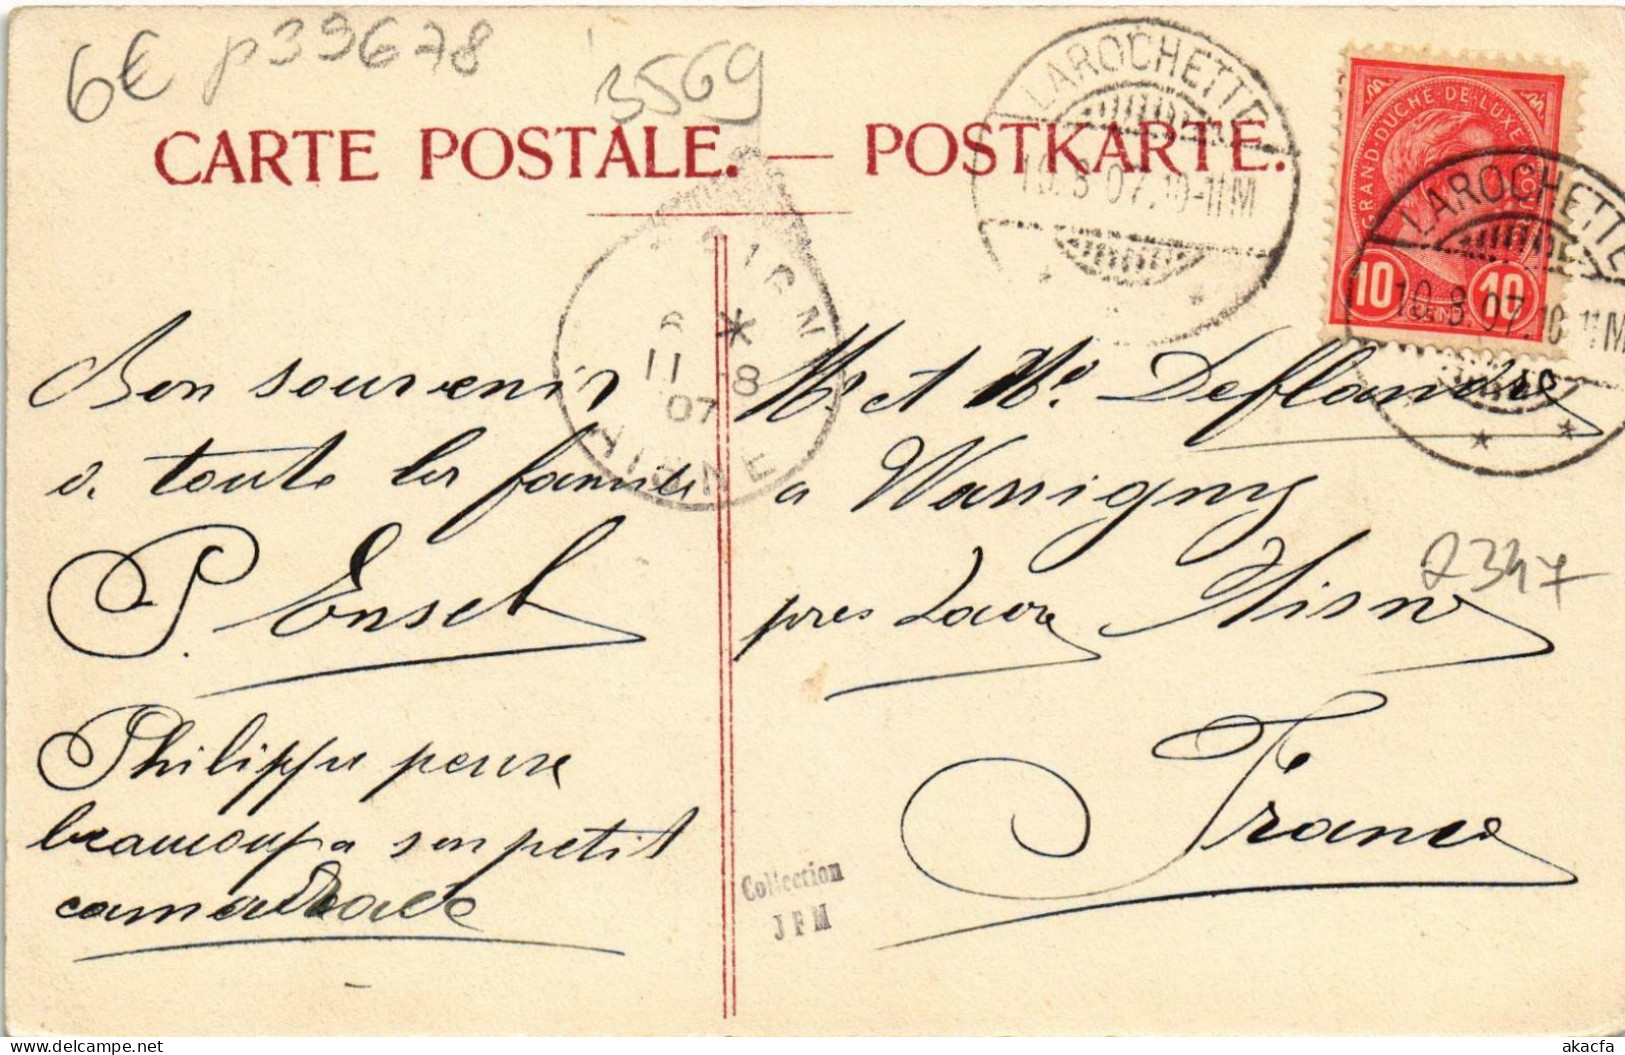 6€ p39678
3569
CARTE POSTALE. — POSTKARTE.
LAROCHETTE
10.8.07.10-11M
GRAND-DUCHÉ-DE-LUXEMBOURG
10 CENT 10
LAROCHETTE
10.8.07.10-11M
11 8
07
AISNE
Bon souvenir
a toute la famille
P. Ensch
Philippe pense
beaucoup a son petit
camarade
Mr et Me Deflandre
a Wassigny
près Aisne
2347
France
Collection
JFM
akacfa